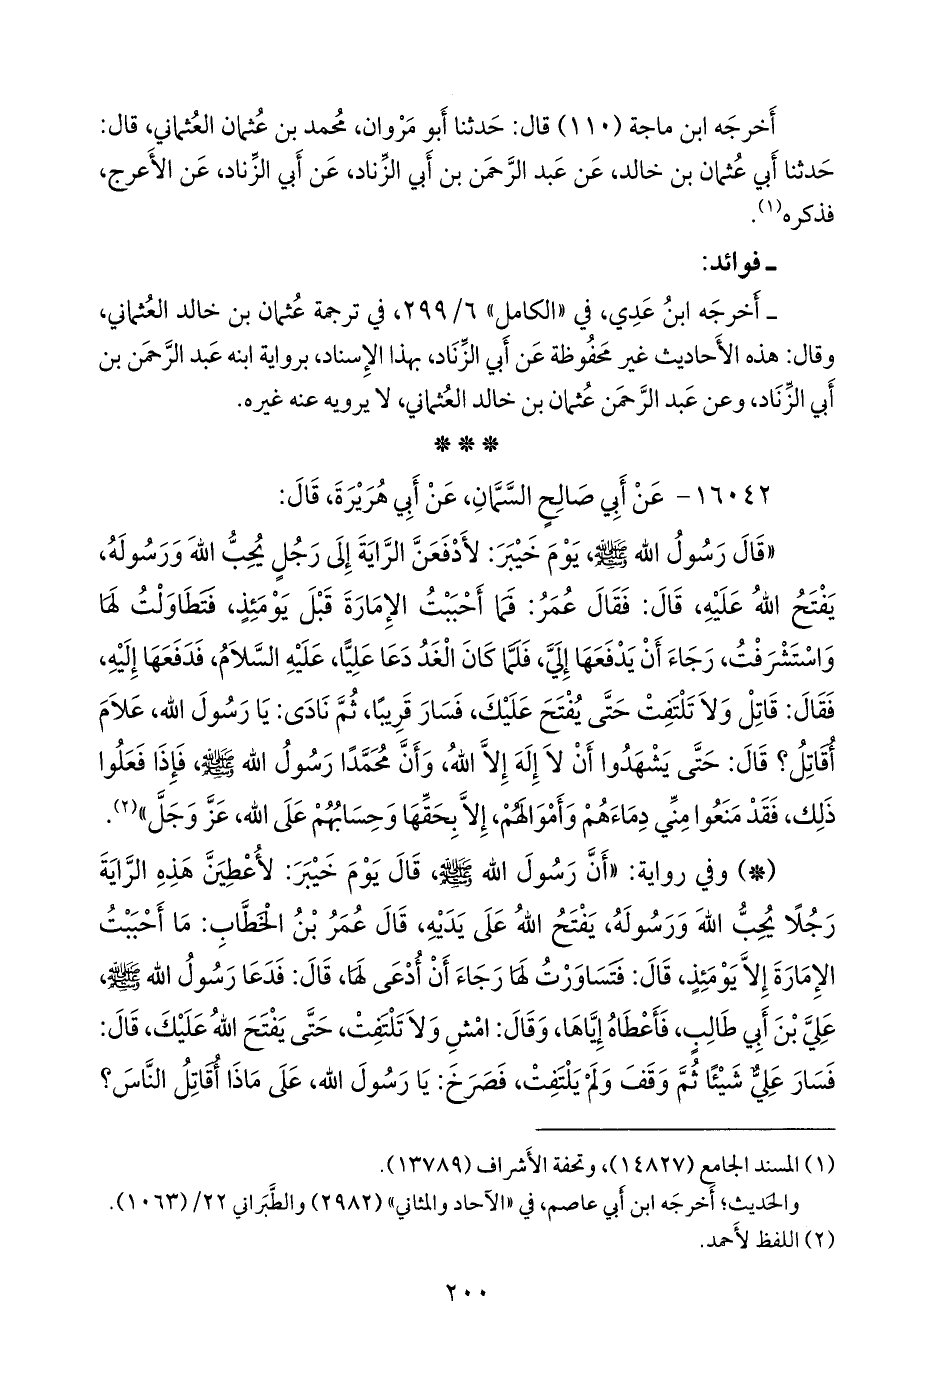 أَخرجَه ابن ماجة (١١٠) قال: حَدثنا أَبو مَرْوان، مُحمد بن عُثمان العُثماني، قال:
حَدثنا أَبي عُثمان بن خالد، عَن عَبد الرَّحمَن بن أَبي الزِّناد، عَن أَبي الزِّناد، عَن الأَعرج،
فذكره(١).
ـ فوائد:
ـ أَخرجَه ابنُ عَدِي، في «الكامل» ٦/ ٢٩٩، في ترجمة عُثمان بن خالد العُثماني،
وقال: هذه الأَحاديث غير مَحفُوظة عَن أَبي الزِّنَاد، بهذا الإِسناد، برواية ابنه عَبد الرَّحمَن بن
أَبي الزِّنَاد، وعن عَبد الرَّحمَن عُثمان بن خالد العُثماني، لا يرويه عنه غيره.
* * *
١٦٠٤٢- عَنْ أَبِي صَالِحٍ السَّمَّانِ، عَنْ أَبِي هُرَيْرَةَ، قَالَ:
«قَالَ رَسُولُ الله ﷺ، يَوْمَ خَيْبَرَ: لأَدْفَعَنَّ الرَّايَةَ إِلَى رَجُلٍ يُحِبُّ اللهَ وَرَسُولَهُ،
يَفْتَحُ اللهُ عَلَيْهِ، قَالَ: فَقَالَ عُمَرُ: فَمَا أَحْبَبْتُ الإِمَارَةَ قَبْلَ يَوْمَئِذٍ، فَتَطَاوَلْتُ لَهَا
وَاسْتَشْرَفْتُ، رَجَاءَ أَنْ يَدْفَعَهَا إِلَيَّ، فَلَمَّا كَانَ الْغَدُ دَعَا عَلِيًّا، عَلَيْهِ السَّلَامُ، فَدَفَعَهَا إِلَيْهِ،
فَقَالَ: قَاتِلْ وَلاَ تَلْتَفِتْ حَتَّى يُفْتَحَ عَلَيْكَ، فَسَارَ قَرِيبًا، ثُمَّ نَادَى: يَا رَسُولَ الله، عَلَامَ
أُقَاتِلُ؟ قَالَ: حَتَّى يَشْهَدُوا أَنْ لاَ إِلَهَ إِلاَّ اللهُ، وَأَنَّ مُحَمَّدًا رَسُولُ الله ﷺ، فَإِذَا فَعَلُوا
ذَلِكَ، فَقَدْ مَنَعُوا مِنِّي دِمَاءَهُمْ وَأَمْوَالَهُمْ، إِلاَّ بِحَقِّهَا وَحِسَابُهُمْ عَلَى الله، عَزَّ وَجَلَّ»(٢).
(*) وفي رواية: «أَنَّ رَسُولَ الله ﷺ، قَالَ يَوْمَ خَيْبَرَ: لأُعْطِيَنَّ هَذِهِ الرَّايَةَ
رَجُلًا يُحِبُّ اللهَ وَرَسُولَهُ، يَفْتَحُ اللهُ عَلَى يَدَيْهِ، قَالَ عُمَرُ بْنُ الْخَطَّابِ: مَا أَحْبَبْتُ
الإِمَارَةَ إِلاَّ يَوْمَئِذٍ، قَالَ: فَتَسَاوَرْتُ لَهَا رَجَاءَ أَنْ أُدْعَى لَهَا، قَالَ: فَدَعَا رَسُولُ الله ﷺ،
عَلِيَّ بْنَ أَبِي طَالِبٍ، فَأَعْطَاهُ إِيَّاهَا، وَقَالَ: امْشِ وَلاَ تَلْتَفِتْ، حَتَّى يَفْتَحَ اللهُ عَلَيْكَ، قَالَ:
فَسَارَ عَلِيٌّ شَيْئًا ثُمَّ وَقَفَ وَلَمْ يَلْتَفِتْ، فَصَرَخَ: يَا رَسُولَ الله، عَلَى مَاذَا أُقَاتِلُ النَّاسَ؟
(١) المسند الجامع (١٤٨٢٧)، وتحفة الأَشراف (١٣٧٨٩).
والحَديث؛ أَخرجَه ابن أَبي عاصم، في «الآحاد والمثاني» (٢٩٨٢) والطَّبَراني ٢٢/ (١٠٦٣).
(٢) اللفظ لأَحمد.
٢٠٠